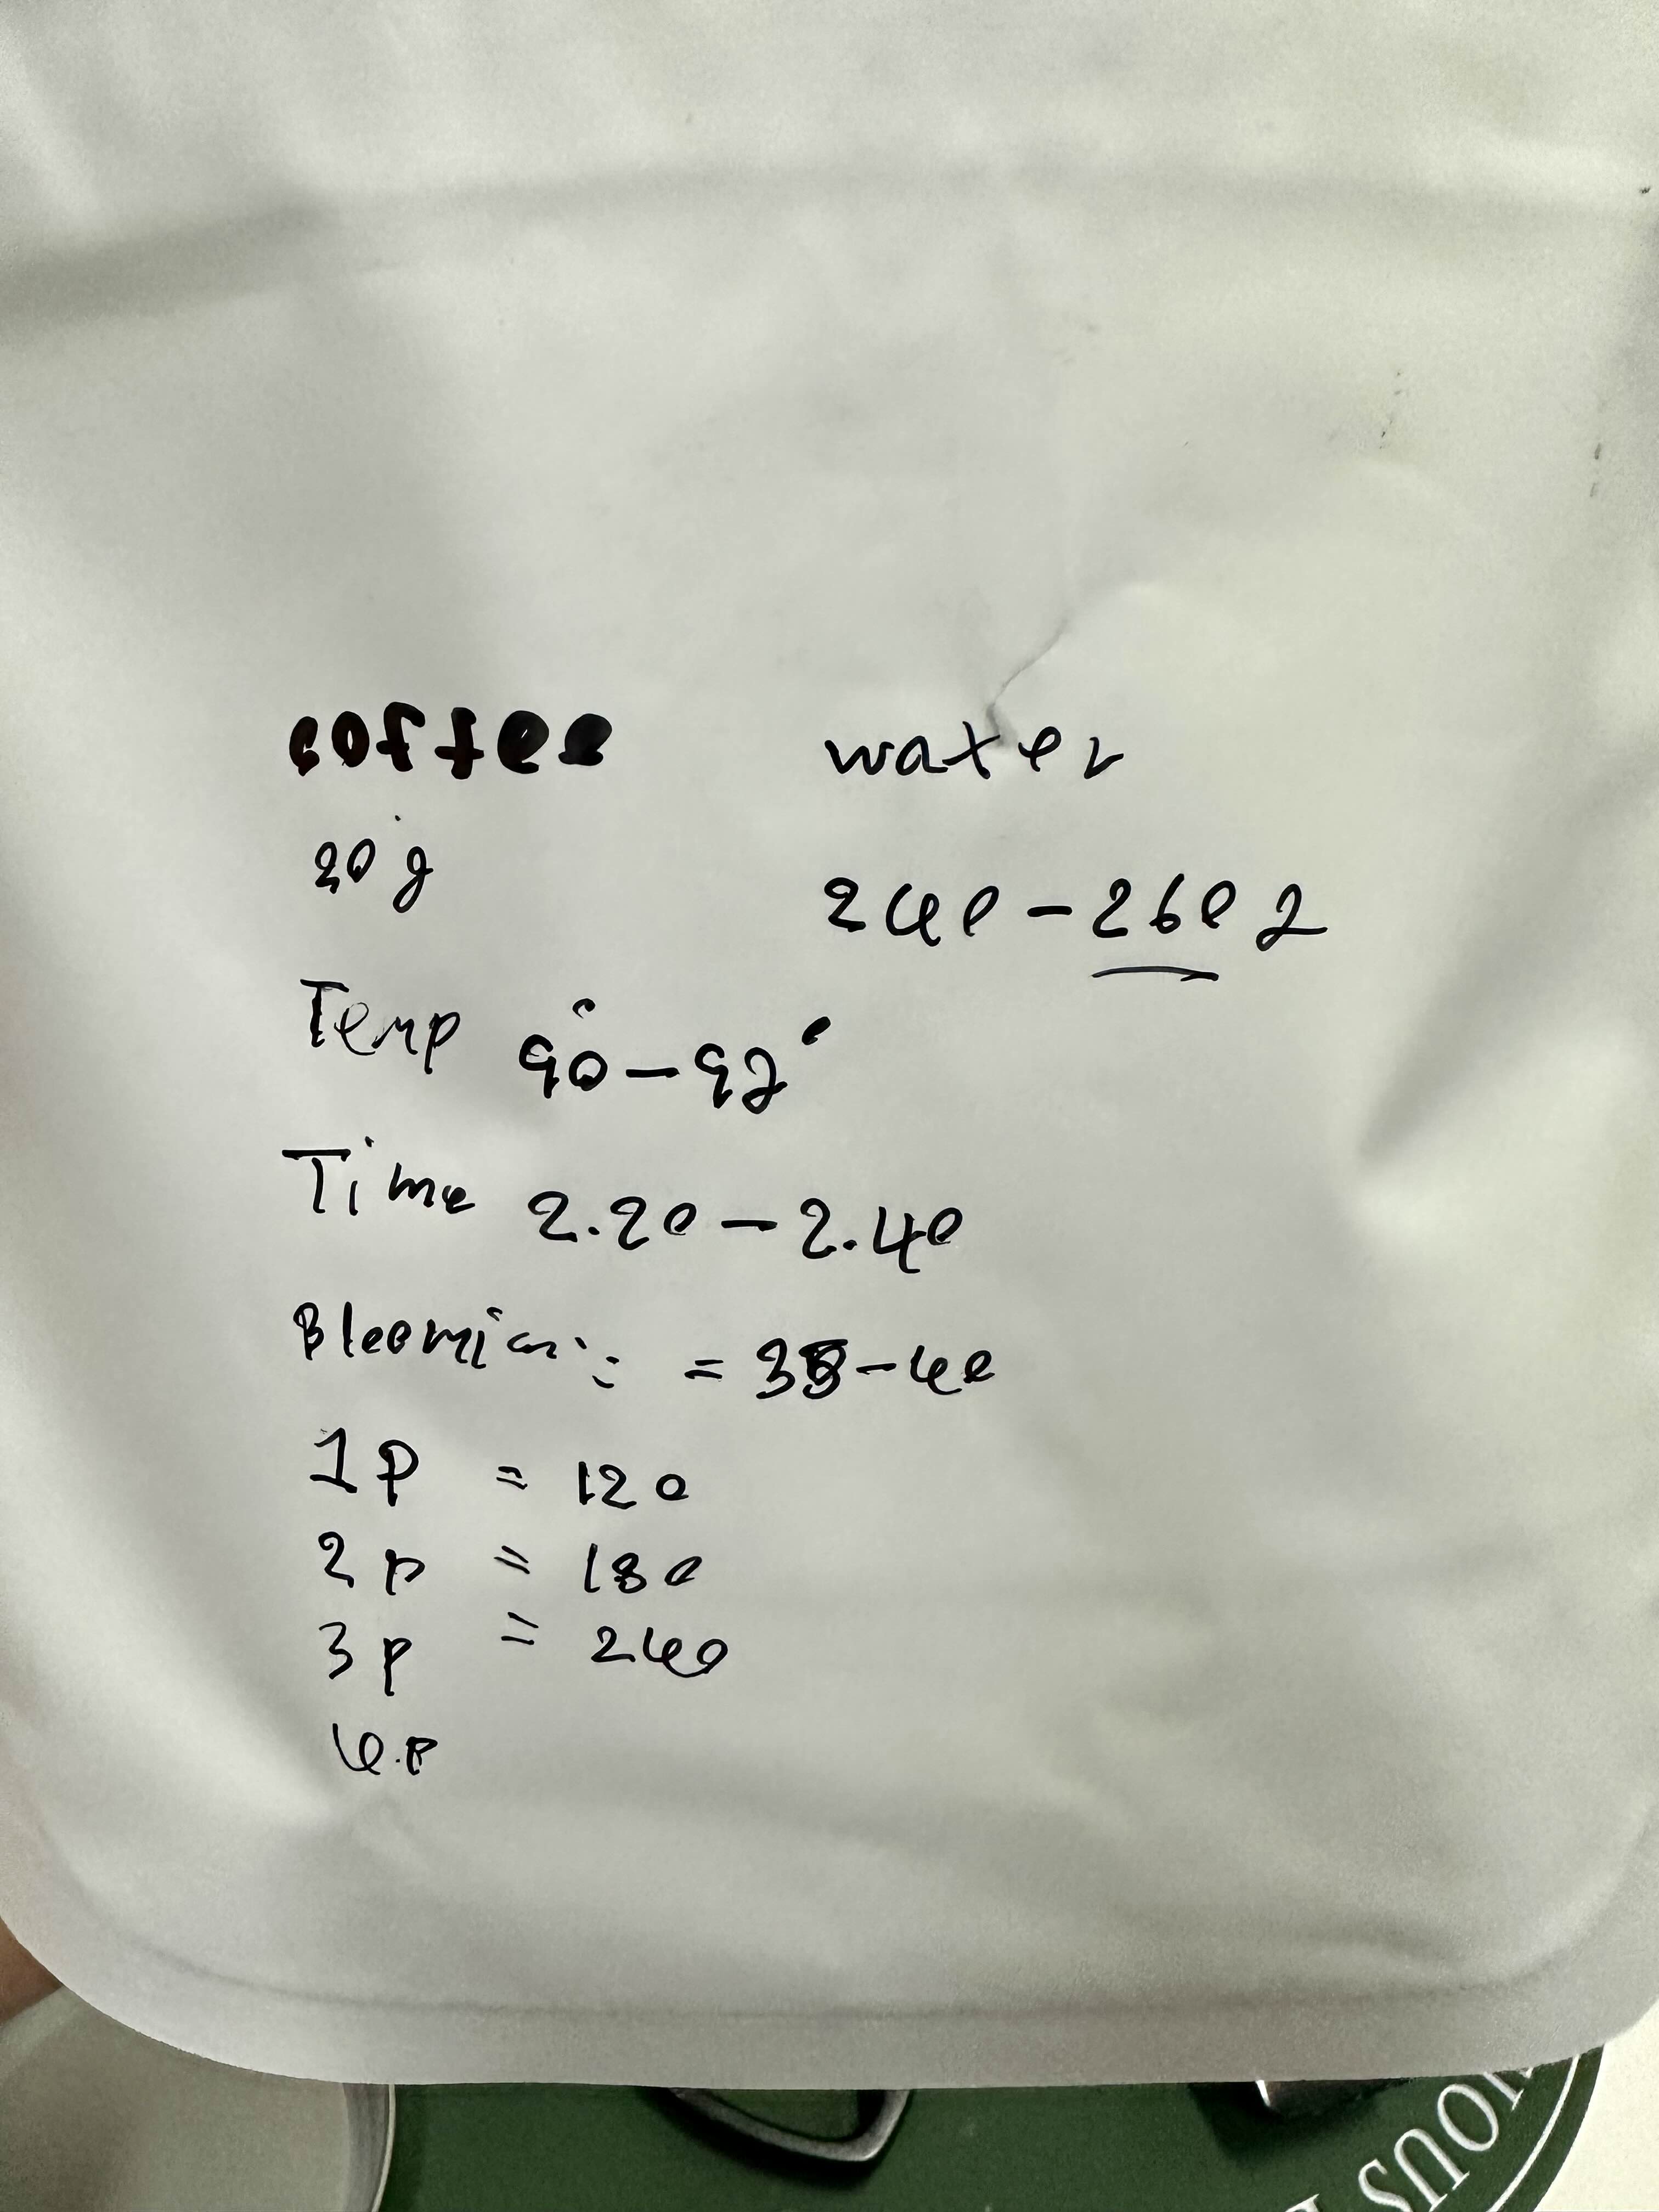 coffee water
20 g 240 - 260 g
Temp 90° - 92°
Time 2.20 - 2.40
= 35 - 40
1P = 120
2P = 180
3P = 240
4.P
OUS